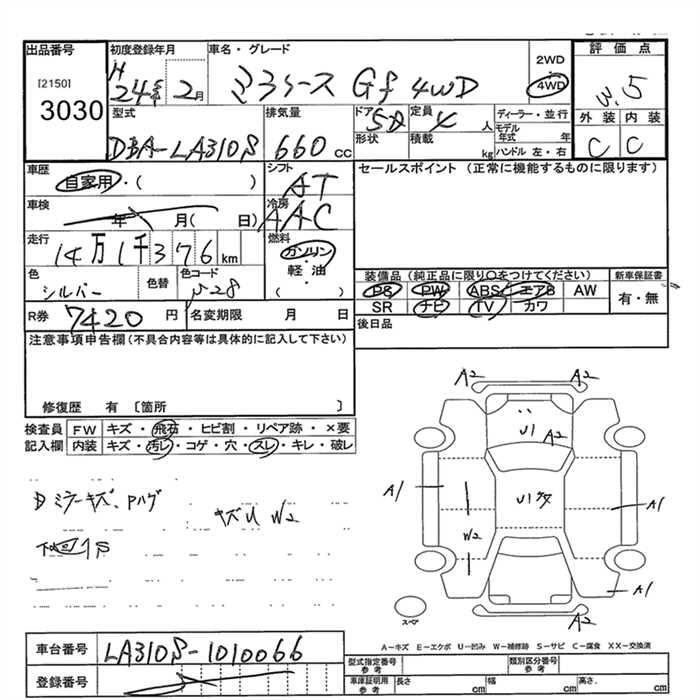 出品番号 初度登録年月 車名・グレード 2WD 評価点
[2150] H 24年 2月 ミラ イース Gf 4WD 4WD 3.5
3030
型式 排気量 ドア 定員 ディーラー・並行 外装 内装
DBA-LA310S 660 cc 5D 4 人 モデル年式 年 C C
形状 積載 kg ハンドル 左・右
車歴 シフト セールスポイント (正常に機能するものに限ります)
自家用・( ) AT
車検 年 月( 日) 冷房 AAC
走行 14万1千376 km 燃料 ガソリン
軽・油
( )
色 シルバー 色替 色コード S28
装備品 (純正品に限り○をつけてください) 新車保証書
PS PW ABS エアB AW 有・無
SR ナビ TV カワ
R券 7420 円 名変期限 月 日 後日品
注意事項申告欄(不具合内容等は具体的に記入して下さい)
修復歴 有 〔箇所 〕
検査員 FW キズ・飛石・ヒビ割・リペア跡・×要
記入欄 内装 キズ・汚レ・コゲ・穴・スレ・キレ・破レ
A2 A2
U1 A2
A1 U1 A1
W2
A1
A2
スペア
Dミラーキズ、Pハゲ
キズU W2
下回りS
A-キズ E-エクボ U-凹み W-補修跡 S-サビ C-腐食 XX-交換済
車台番号 LA310S-1010066
型式指定番号 参考 類別区分番号 参考
登録番号
車庫証明用 参考 長さ cm 幅 cm 高さ cm